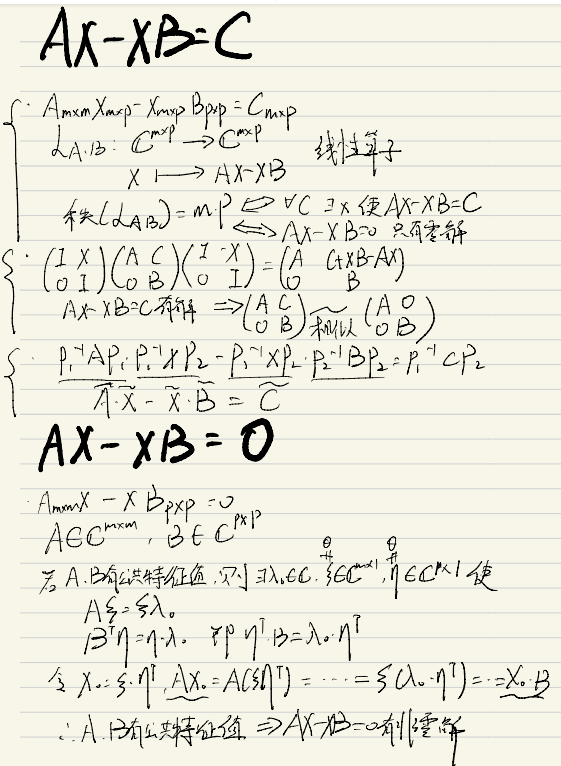 AX-XB=C
· A_{m×m} X_{m×p} - X_{m×p} B_{p×p} = C_{m×p}
L_{A·B}: C^{m×p} → C^{m×p} 线性算子
X ⟼ AX-XB
秩(L_{AB})=m·p ⟺ ∀C ∃X 使AX-XB=C
⟺ AX-XB=0 只有零解
· (I X; 0 I)(A C; 0 B)(I -X; 0 I)=(A C+XB-AX; B)
AX-XB=C有解 ⟹ (A C; 0 B) ~相似 (A 0; 0 B)
· P₁⁻¹AP₁·P₁⁻¹XP₂ - P₁⁻¹XP₂·P₂⁻¹BP₂=P₁⁻¹CP₂
Ã·X̃ - X̃·B̃ = C̃
AX-XB=0
· A_{m×m}X - XB_{p×p}=0
A∈C^{m×m}, B∈C^{p×p}
若A.B有公共特征值,则∃λ₀∈C. θ≠ξ∈C^{m×1}, θ≠η∈C^{p×1} 使
Aξ=ξλ₀
Bᵀη=η·λ₀ 即 ηᵀ·B=λ₀·ηᵀ
令X₀=ξ·ηᵀ, AX₀=A(ξηᵀ)=⋯=ξ(λ₀·ηᵀ)=⋯=X₀·B
∴A.B有公共特征值 ⟹ AX-XB=0有非零解